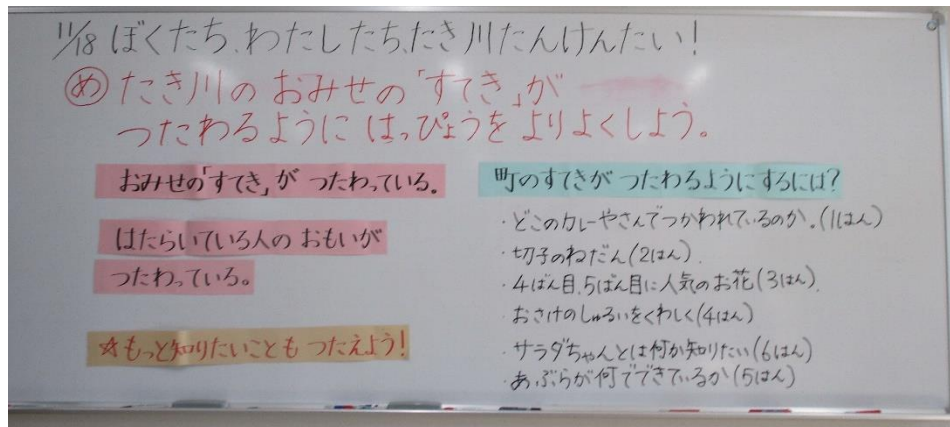 11/18 ぼくたち、わたしたち、たき川たんけんたい!
め たき川の おみせの「すてき」が
つたわるように はっぴょうを よりよくしよう。
おみせの「すてき」が つたわっている。
はたらいている人の おもいが
つたわっている。
☆もっと知りたいことも つたえよう!
町のすてきが つたわるようにするには?
・どこのカレーやさんでつかわれているのか。(1はん)
・切子のねだん(2はん)
・4ばん目、5ばん目に人気のお花(3はん)
・おさけのしゅるいをくわしく(4はん)
・サラダちゃんとは何か知りたい(6はん)
・あぶらが何でできているか(5はん)